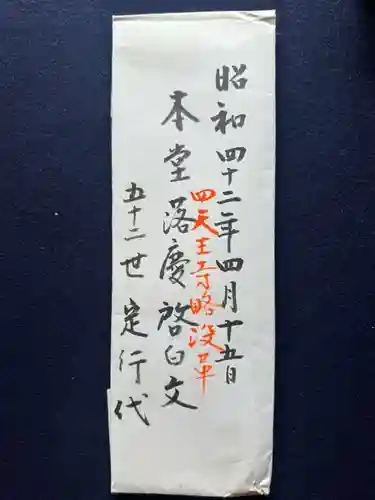 昭和四十二年四月十五日
四天王寺略沒革
本堂落慶啓白文
五十二世定行代